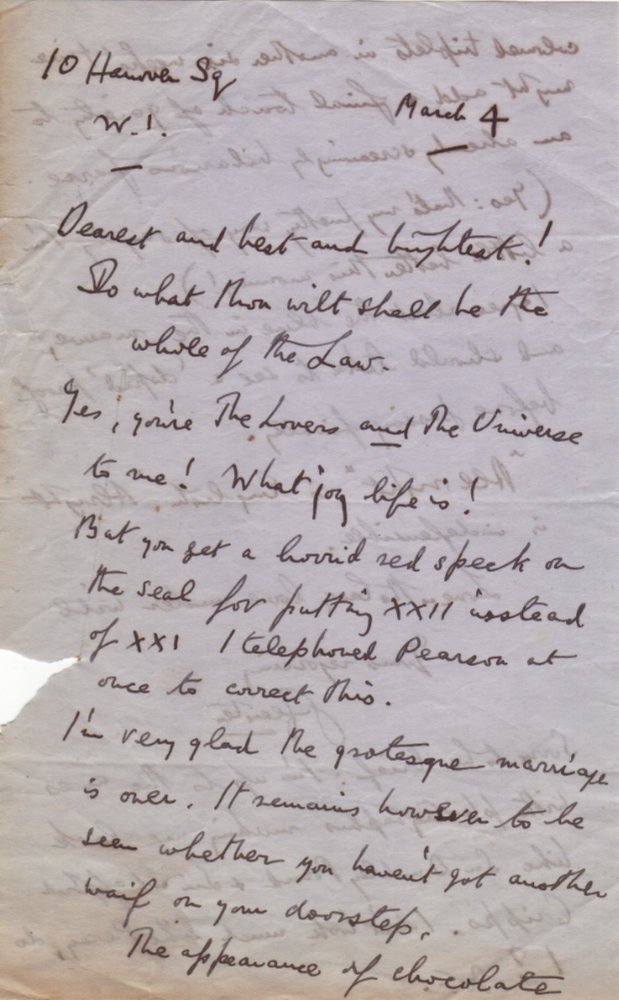 10 Hanover Sq
W.1.
March 4
Dearest and best and brightest!
Do what thou wilt shall be the
whole of the Law.
Yes, you're The Lovers and The Universe
to me! What joy life is!
But you get a horrid red speck on
the seal for putting XXII instead
of XXI I telephoned Pearson at
once to correct this.
I'm very glad the grotesque marriage
is over. It remains however to be
seen whether you haven't got another
waif on your doorstep.
The appearance of chocolate